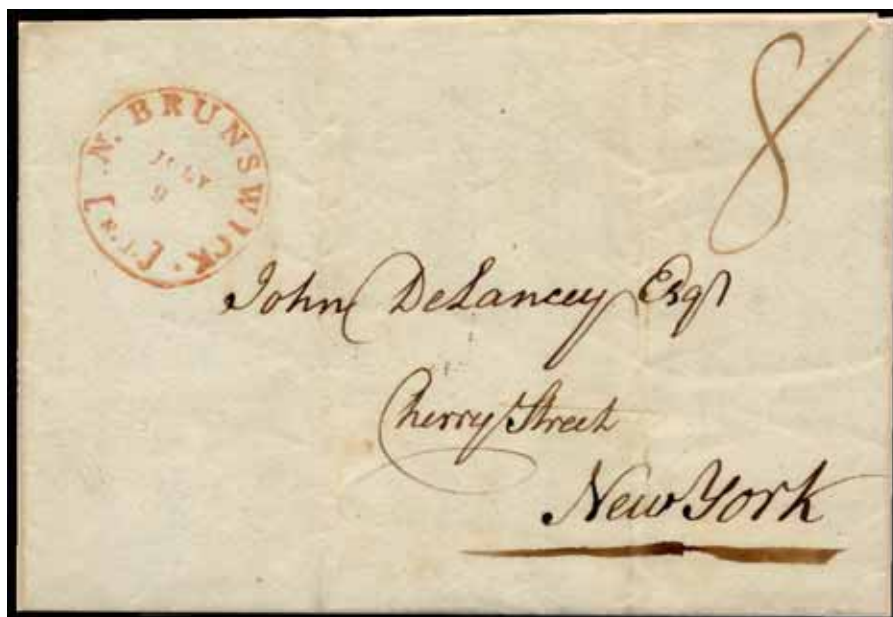 8
N. BRUNSWICK. [N.J.]
JULY
9
John DeLancey Esqr
Cherry Street
New York